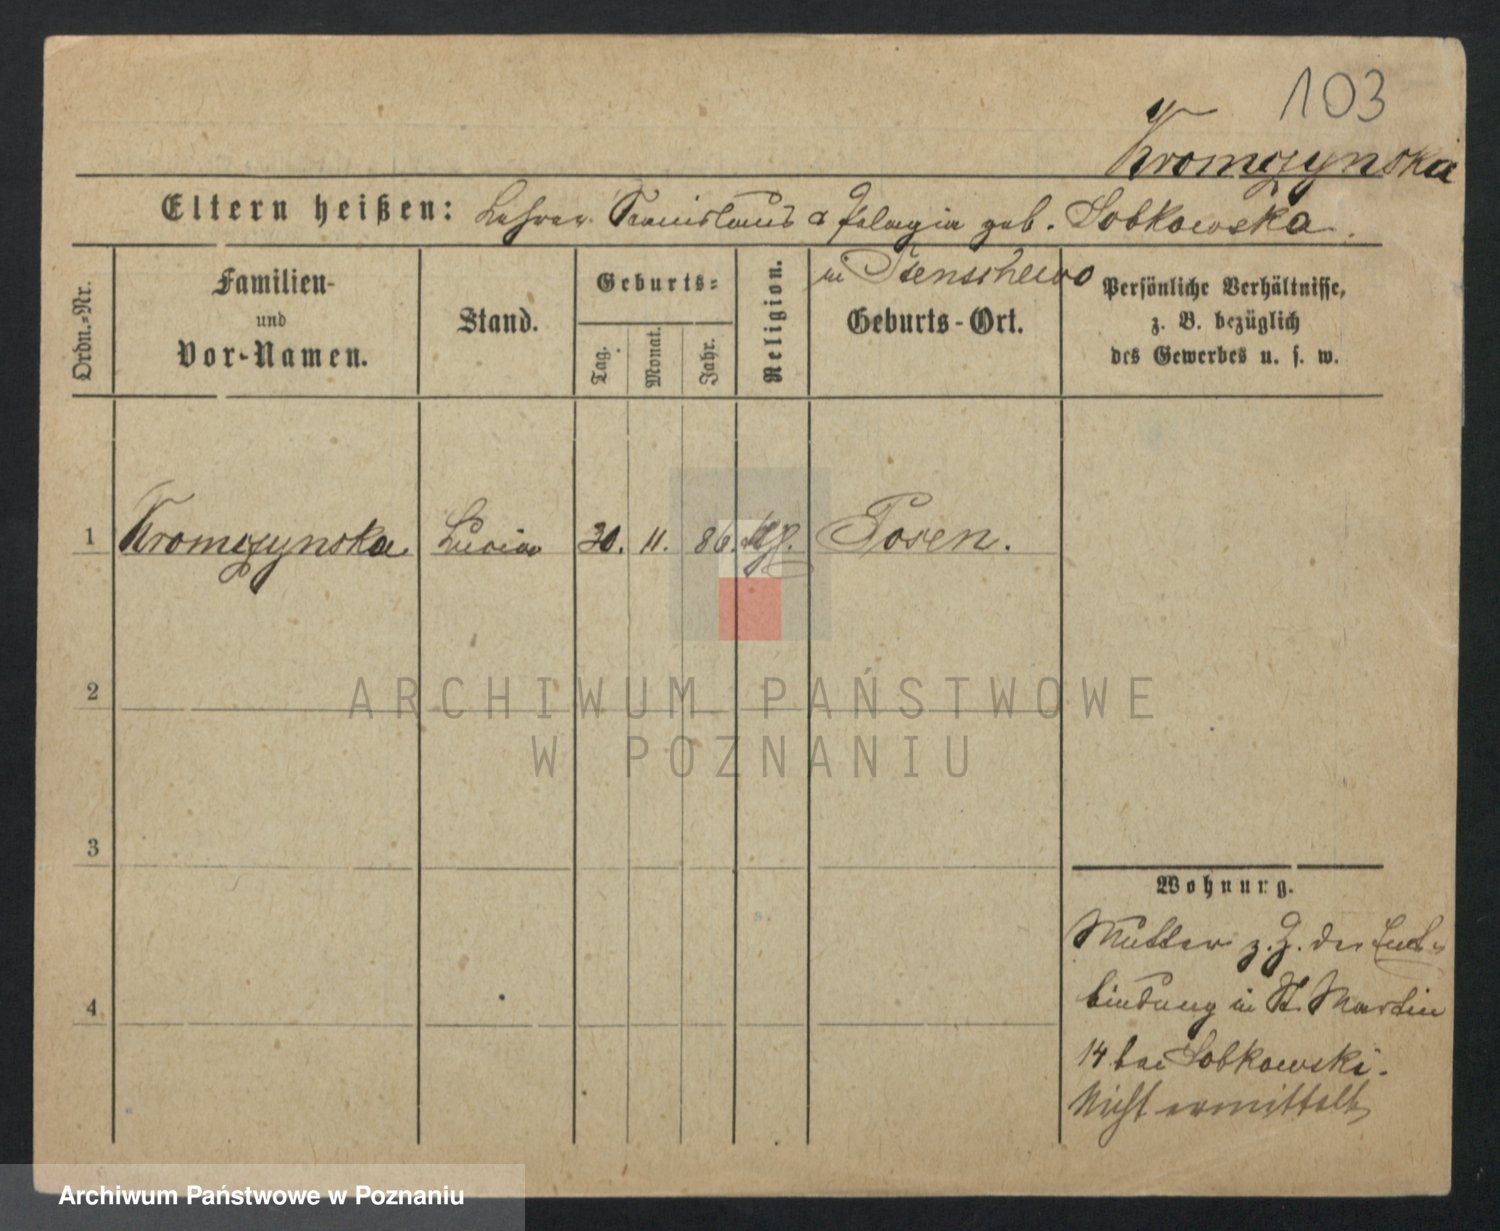 103
Kromczynska
Eltern heißen: Lehrer Stanislaus & Pelagia geb. Sobkowska.
in
Ordn.=Nr.
Familien-
und
Vor-Namen.
Stand.
Geburts=
Tag.
Monat.
Jahr.
Religion.
Geburts-Ort.
Persönliche Verhältnisse,
z. B. bezüglich
des Gewerbes u. s. w.
1 Kromczynska Lucia 30. 11. 86. Posen.
2
ARCHIWUM PAŃSTWOWE
W POZNANIU
3
Wohnung.
Mutter z. Z. der Ent-
bindung in St. Martin
4
14 bei Sobkowski.
Nicht ermittelt
Archiwum Państwowe w Poznaniu